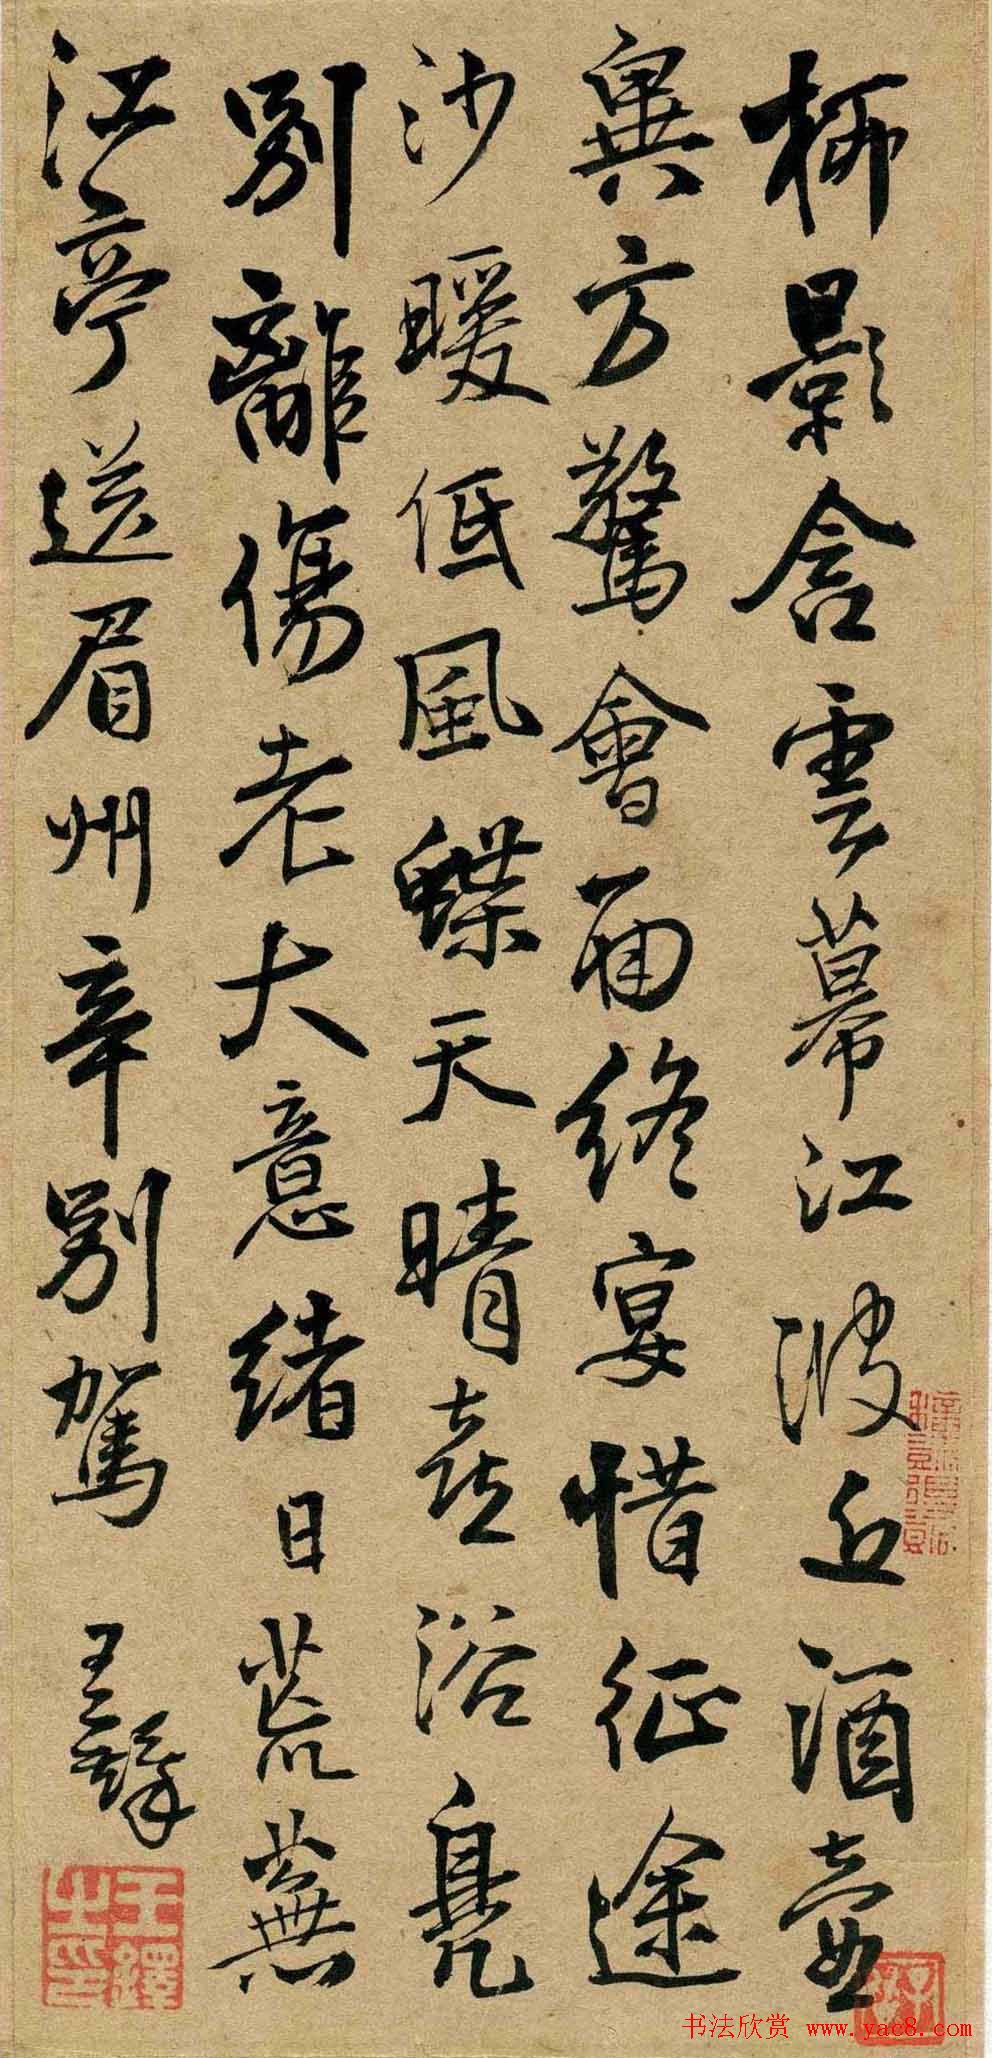 柳影含雲幕江波近酒壺
異方驚會面終宴惜征途
沙暖低風蝶天晴喜浴鳧
別離傷老大意緒日荒蕪
江亭送眉州辛別駕 王鐸
王鐸之印
书法欣赏 www.yac8.com